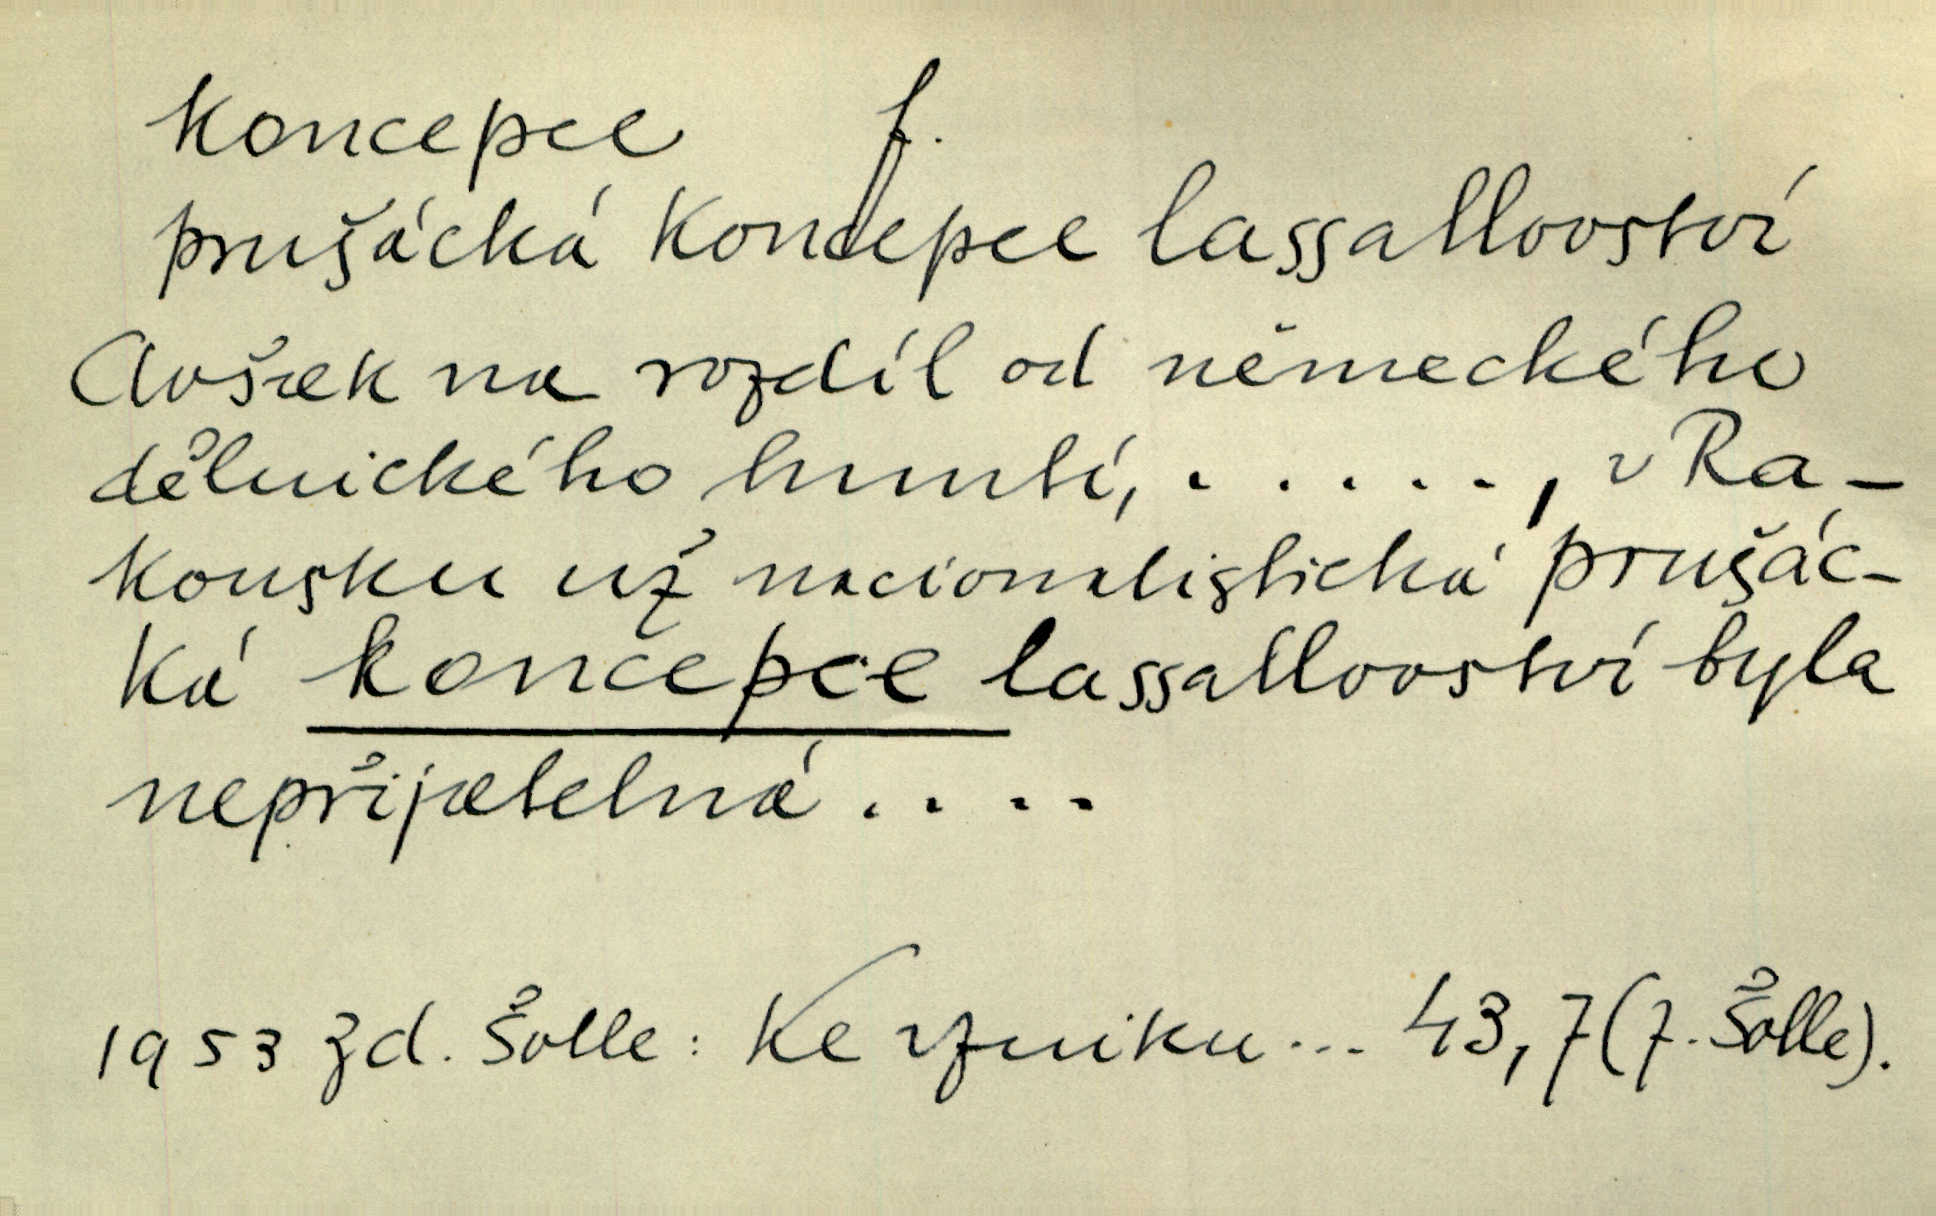 koncepce f.
prušácká koncepce lassallovství
Avšak na rozdíl od německého
dělnického hnutí, . . . . . , v Ra-
kousku už nacionalistická prušác-
ká koncepce lassallovství byla
nepřijatelná . . . .
1953 Zd. Šolle: Ke vzniku ... 43, 7 (Z. Šolle).